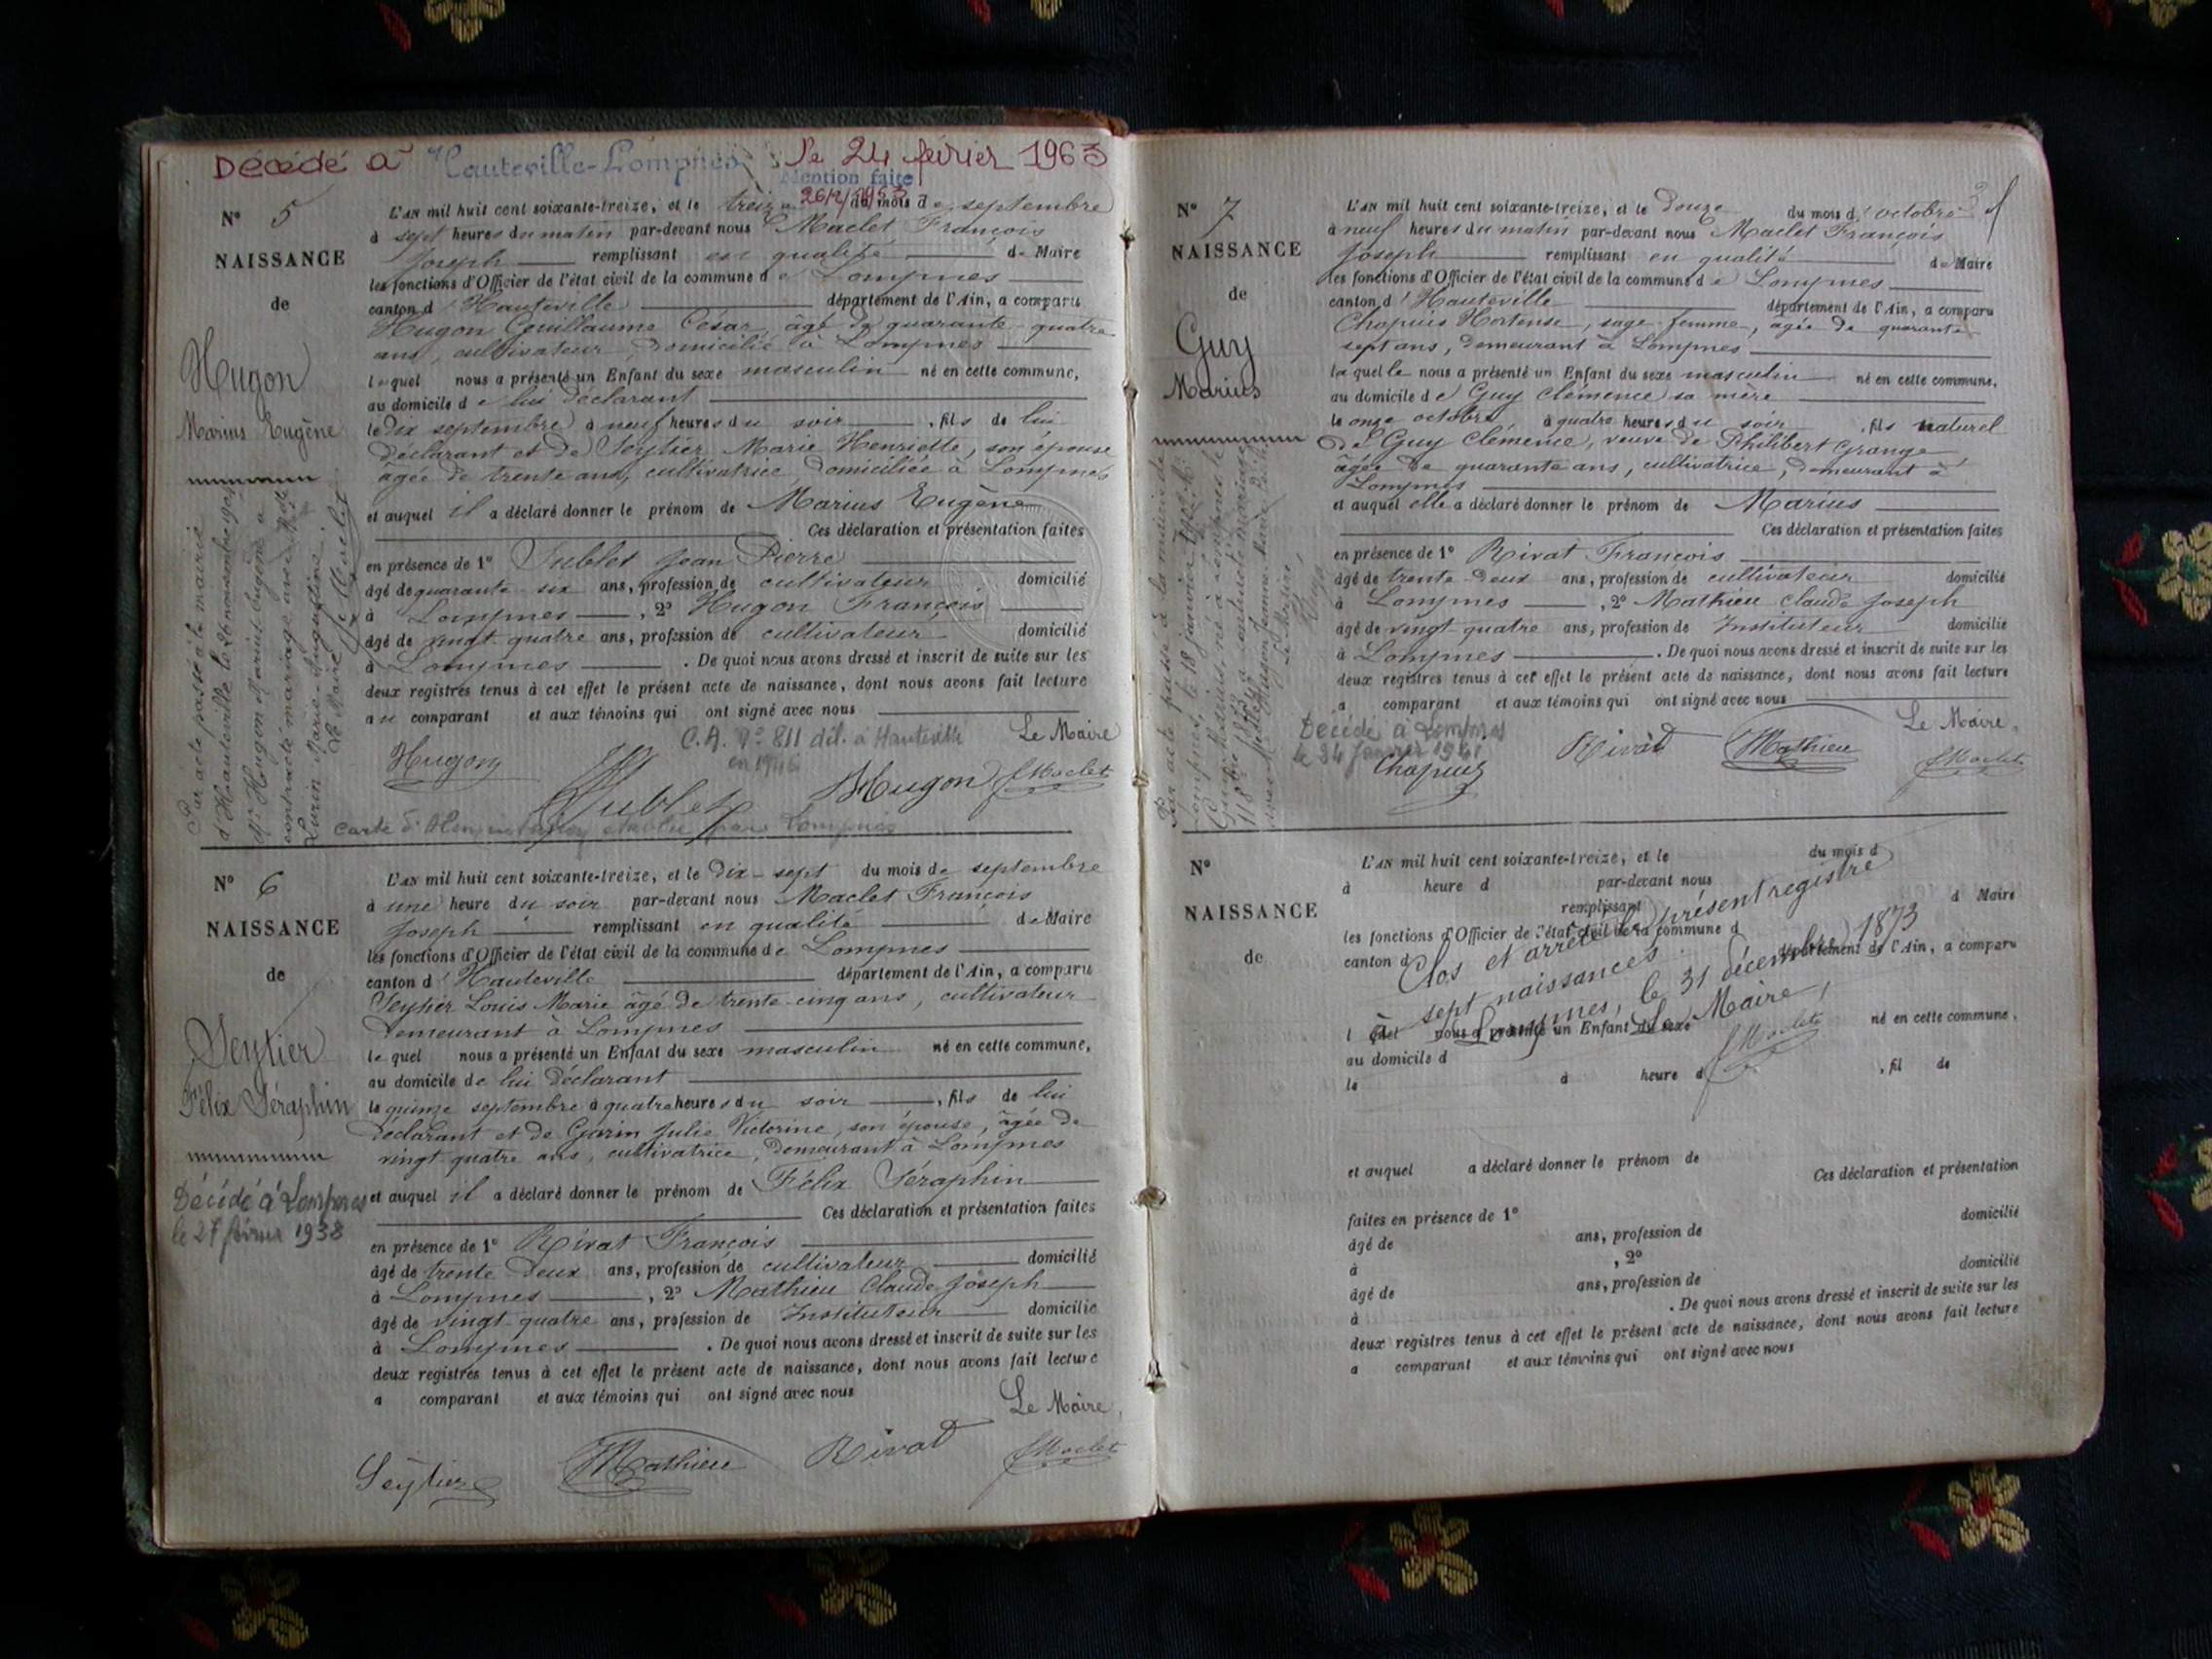 Décédé à Hauteville-Lompnes le 24 février 1963
Mention faite
N° 5
NAISSANCE
de
Hugon
Marius Eugène
L'AN mil huit cent soixante-treize, et le treize du mois de septembre
à sept heures du matin par-devant nous Maclet François
Joseph remplissant en qualité de Maire
les fonctions d'Officier de l'état civil de la commune de Lompnes
canton d'Hauteville département de l'Ain, a comparu
Hugon Guillaume César, âgé de quarante-quatre
ans, cultivateur, domicilié à Lompnes
lequel nous a présenté un Enfant du sexe masculin né en cette commune,
au domicile de lui déclarant
le dix septembre à neuf heures du soir, fils de lui
déclarant et de Seytier Marie Henriette, son épouse
âgée de trente ans, cultivatrice, domiciliée à Lompnes
et auquel il a déclaré donner le prénom de Marius Eugène
Ces déclaration et présentation faites
en présence de 1° Sublet Jean Pierre
âgé de quarante six ans, profession de cultivateur domicilié
à Lompnes, 2° Hugon François
âgé de vingt quatre ans, profession de cultivateur domicilié
à Lompnes. De quoi nous avons dressé et inscrit de suite sur les
deux registres tenus à cet effet le présent acte de naissance, dont nous avons fait lecture
au comparant et aux témoins qui ont signé avec nous
Le Maire
C.A. n° 811 dél. à Hauteville
en 1946
Hugon Sublet Hugon Maclet
Carte d'Alimentation établie par Lompnes
Par acte passé à la mairie
d'Hauteville le novembre
Mr Hugon Marius Eugène a
contracté mariage avec Melle
Marie Augustine
Le Maire
N° 6
NAISSANCE
de
Seytier
Félix Séraphin
Décédé à Lompnes
le 27 février 1938
L'AN mil huit cent soixante-treize, et le dix-sept du mois de septembre
à une heure du soir par-devant nous Maclet François
Joseph remplissant en qualité de Maire
les fonctions d'Officier de l'état civil de la commune de Lompnes
canton d'Hauteville département de l'Ain, a comparu
Seytier Louis Marie âgé de trente-cinq ans, cultivateur
demeurant à Lompnes
lequel nous a présenté un Enfant du sexe masculin né en cette commune,
au domicile de lui déclarant
le quinze septembre à quatre heures du soir, fils de lui
déclarant et de Garin Julie Victorine, son épouse, âgée de
vingt quatre ans, cultivatrice, demeurant à Lompnes
et auquel il a déclaré donner le prénom de Félix Séraphin
Ces déclaration et présentation faites
en présence de 1° Rivat François
âgé de trente deux ans, profession de cultivateur domicilié
à Lompnes, 2° Mathieu Claude Joseph
âgé de vingt-quatre ans, profession de Instituteur domicilié
à Lompnes. De quoi nous avons dressé et inscrit de suite sur les
deux registres tenus à cet effet le présent acte de naissance, dont nous avons fait lecture
a comparant et aux témoins qui ont signé avec nous
Le Maire,
Seytier Mathieu Rivat Maclet
N° 7
NAISSANCE
de
Guy
Marius
L'AN mil huit cent soixante-treize, et le douze du mois d'octobre
à neuf heures du matin par-devant nous Maclet François
Joseph remplissant en qualité de Maire
les fonctions d'Officier de l'état civil de la commune de Lompnes
canton d'Hauteville département de l'Ain, a comparu
Chapuis Hortense, sage-femme, âgée de quarante
sept ans, demeurant à Lompnes
laquelle nous a présenté un Enfant du sexe masculin né en cette commune,
au domicile de Guy Clémence sa mère
le onze octobre à quatre heures du soir, fils naturel
de Guy Clémence, veuve de Philibert Grange
âgée de quarante ans, cultivatrice, demeurant à
Lompnes
et auquel elle a déclaré donner le prénom de Marius
Ces déclaration et présentation faites
en présence de 1° Rivat François
âgé de trente-deux ans, profession de cultivateur domicilié
à Lompnes, 2° Mathieu Claude Joseph
âgé de vingt-quatre ans, profession de Instituteur domicilié
à Lompnes. De quoi nous avons dressé et inscrit de suite sur les
deux registres tenus à cet effet le présent acte de naissance, dont nous avons fait lecture
a comparant et aux témoins qui ont signé avec nous
Le Maire,
Décédé à Lompnes
Chapuis Rivat Mathieu Maclet
Par acte passé à la mairie de
Lompnes, le 18 janvier
Guy Marius né à Lompnes le
a contracté mariage
Le Maire,
N°
NAISSANCE
de
L'AN mil huit cent soixante-treize, et le du mois d
à heure d par-devant nous
remplissant d Maire
les fonctions d'Officier de l'état civil de la commune d
canton d département de l'Ain, a comparu
Clos et arrêté le présent registre
à sept naissances.
Lompnes, le 31 décembre 1873
Le Maire,
Maclet
l quel nous a présenté un Enfant du sexe né en cette commune,
au domicile d
le à heure d , fil de
et auquel a déclaré donner le prénom de
Ces déclaration et présentation
faites en présence de 1°
âgé de ans, profession de domicilié
à , 2°
âgé de ans, profession de domicilié
à . De quoi nous avons dressé et inscrit de suite sur les
deux registres tenus à cet effet le présent acte de naissance, dont nous avons fait lecture
a comparant et aux témoins qui ont signé avec nous